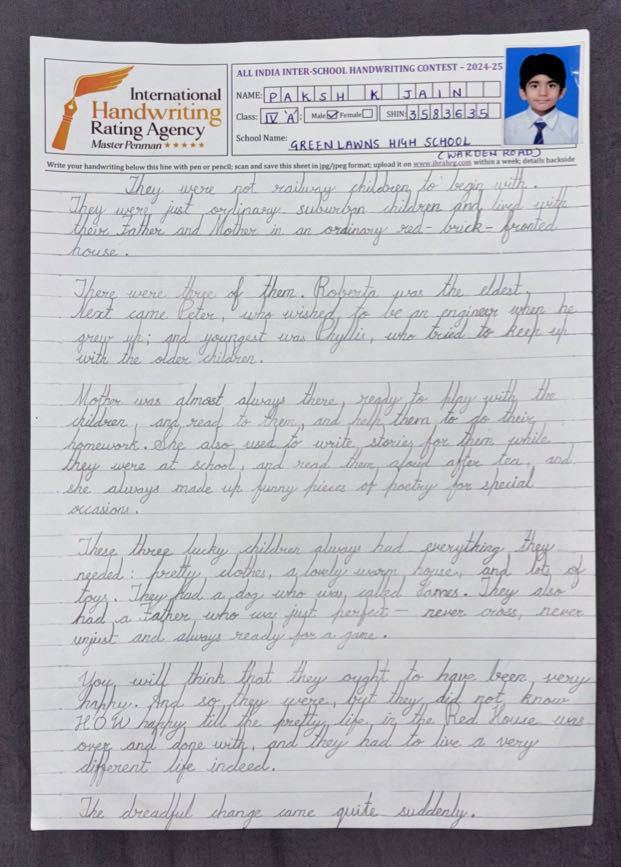 International
Handwriting
Rating Agency
Master Penman ★★★★★
ALL INDIA INTER-SCHOOL HANDWRITING CONTEST – 2024-25
NAME: PAKSH K JAIN
Class: IV 'A' Male ☑ Female ☐ SHIN: 3583635
School Name: GREEN LAWNS HIGH SCHOOL
(WARDEN ROAD)
Write your handwriting below this line with pen or pencil; scan and save this sheet in jpg/jpeg format; upload it on www.ihrahrg.com within a week; details backside
They were not railway children to begin with.
They were just ordinary suburban children and lived with
their Father and Mother in an ordinary red-brick-fronted
house.
There were three of them. Roberta was the eldest.
Next came Peter, who wished to be an engineer when he
grew up; and youngest was Phyllis, who tried to keep up
with the older children.
Mother was almost always there, ready to play with the
children, and read to them, and help them to do their
homework. She also used to write stories for them while
they were at school, and read them aloud after tea, and
she always made up funny pieces of poetry for special
occasions.
These three lucky children always had everything they
needed: pretty clothes, a lovely warm house, and lots of
toys. They had a dog who was called James. They also
had a Father who was just perfect – never cross, never
unjust and always ready for a game.
You will think that they ought to have been very
happy. And so they were, but they did not know
HOW happy till the pretty life in the Red House was
over and done with, and they had to live a very
different life indeed.
The dreadful change came quite suddenly.